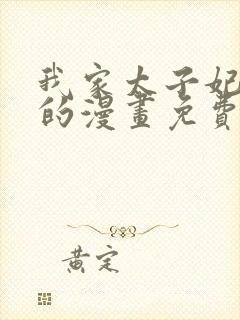 我家太子妃
的漫畫免費
黃定